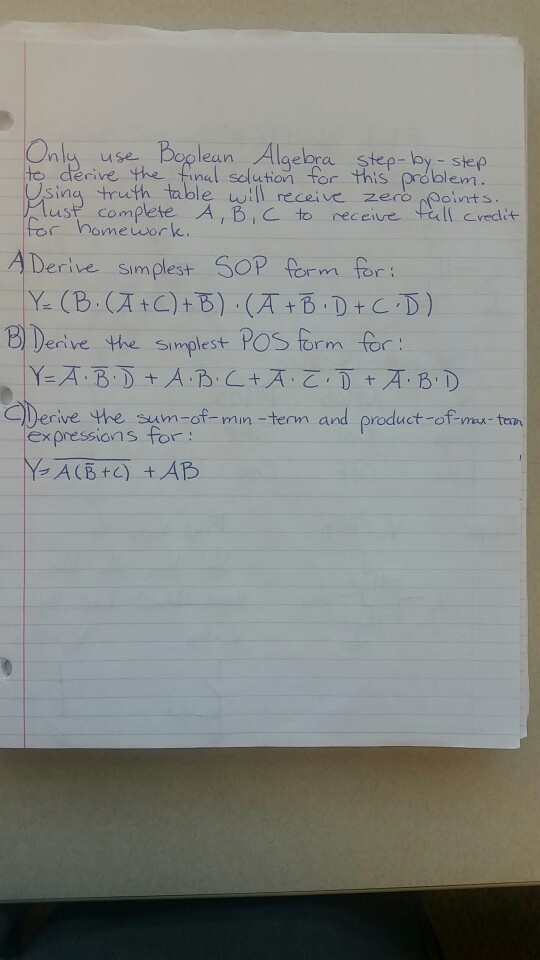 Only use Boolean Algebra step-by-step
to derive the final solution for this problem.
Using truth table will receive zero points.
Must complete A, B, C to receive full credit
for homework.
A) Derive simplest SOP form for:
Y= (B·(A̅+C)+B̅)·(A̅+B̅·D+C·D̅)
B) Derive the simplest POS form for:
Y=A̅·B̅·D̅ + A·B·C+A̅·C̅·D̅ + A̅·B·D
C) Derive the sum-of-min-term and product-of-max-term
expressions for:
Y= A̅(̅B̅̅+̅C̅)̅ + AB